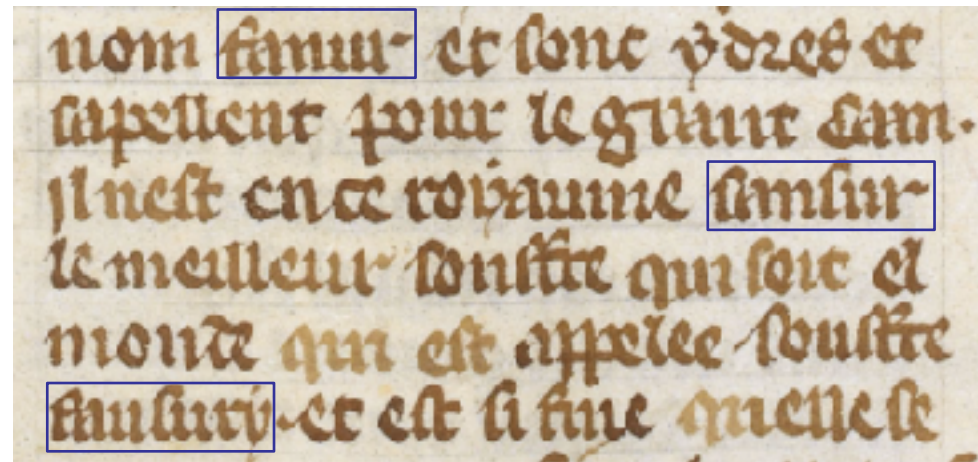 nom fanur et sont ydres et
sapellent pour le grant Cam.
il nest en ce royaume sansur
le meilleur souffre qui soit el
monde qui est appelee souffre
fansury. et est si fine quelle se